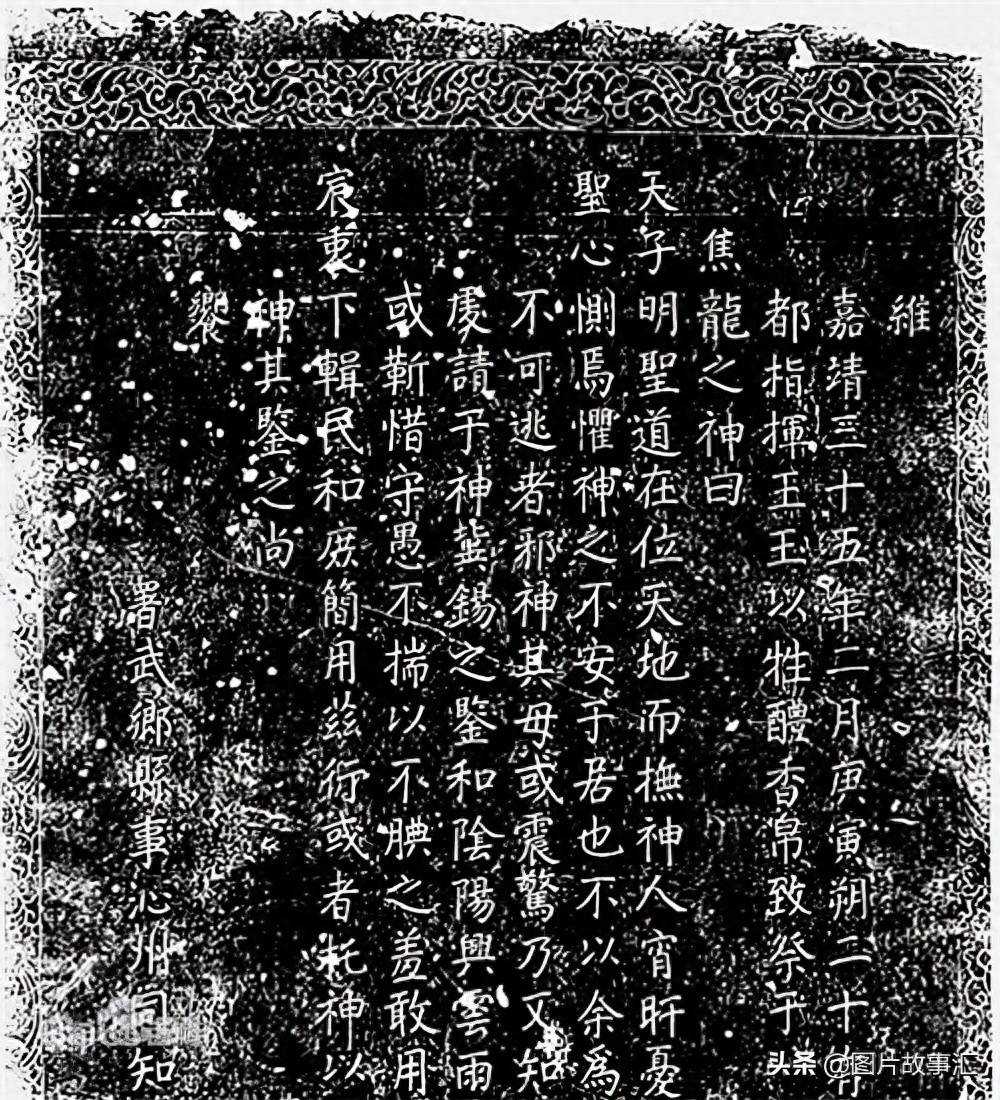 維
嘉靖三十五年二月庚寅朔二十有
都指揮王王以牲醴香帛致祭于
焦龍之神曰
天子明聖道在位天地而撫神人宵旰憂
聖心惻焉懼神之不安于居也不以余為
不可逃者邪神其毋或震驚乃又知
虔請于神冀錫之鑒和陰陽興雲雨
或靳惜守愚不揣以不腆之羞敢用
宸衷下輯民和庶簡用茲行或者托神以
神其鑒之尚
饗
署武鄉縣事沁州同知
头条 @图片故事汇